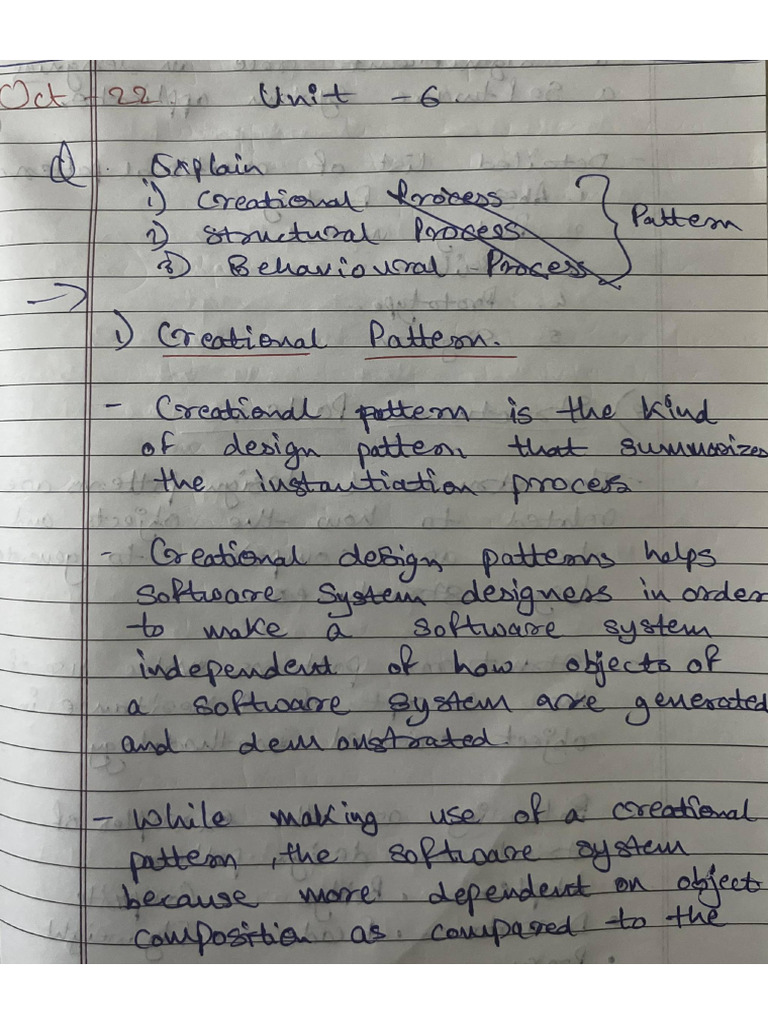 Oct - 22 Unit - 6
Q. Explain
i) Creational Process
2) Structural Process
3) Behavioural Process
Pattern
→
i) Creational Pattern.
- Creational pattern is the kind
of design pattern that summarizes
the instantiation process
- Creational design patterns helps
software system designess in order
to make a software system
independent of how objects of
a software system are generated
and demonstrated.
- While making use of a creational
pattern, the software system
because more dependent on object
composition as compared to the